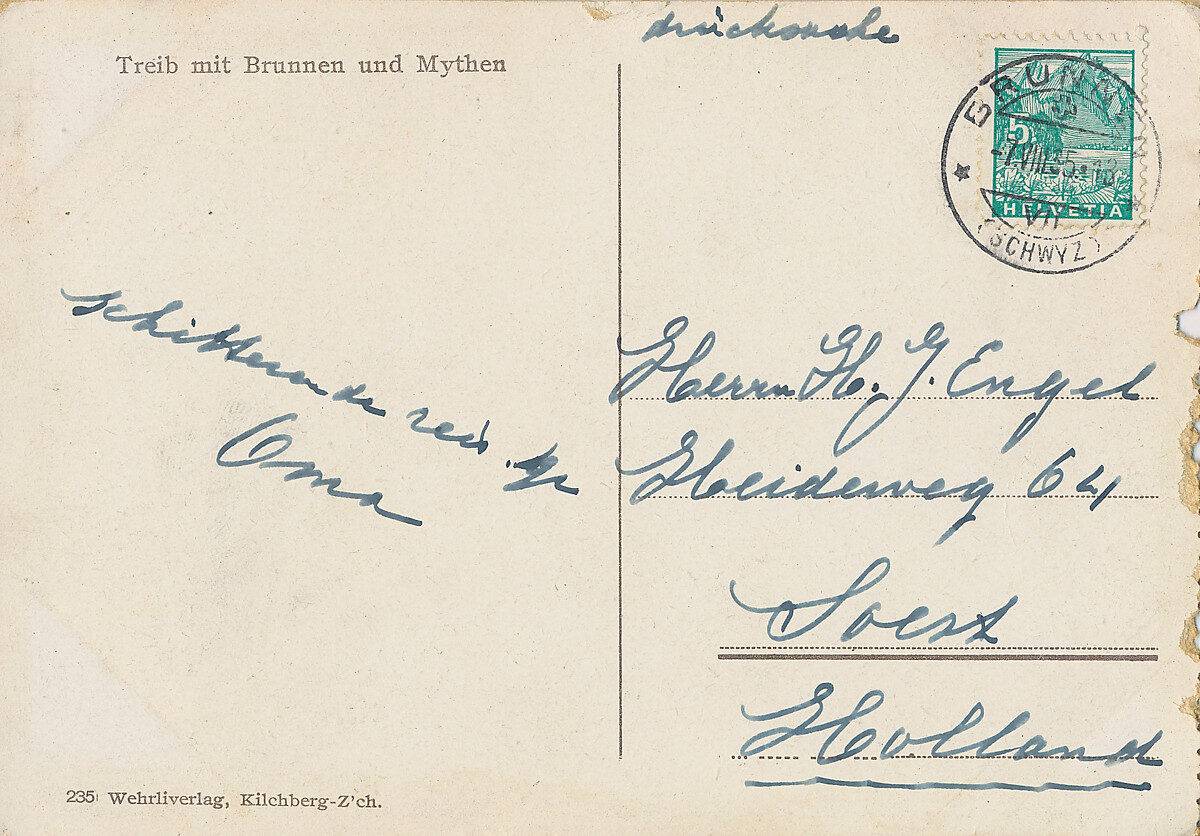 drucksache
Treib mit Brunnen und Mythen
BRUNNEN
-7.VIII.35.-18
VII
(SCHWYZ)
5
HELVETIA
schitterende reis.
Oma
Herrn H. J. Engel
Heideweg 64
Soest
Holland
235 Wehrliverlag, Kilchberg-Z'ch.